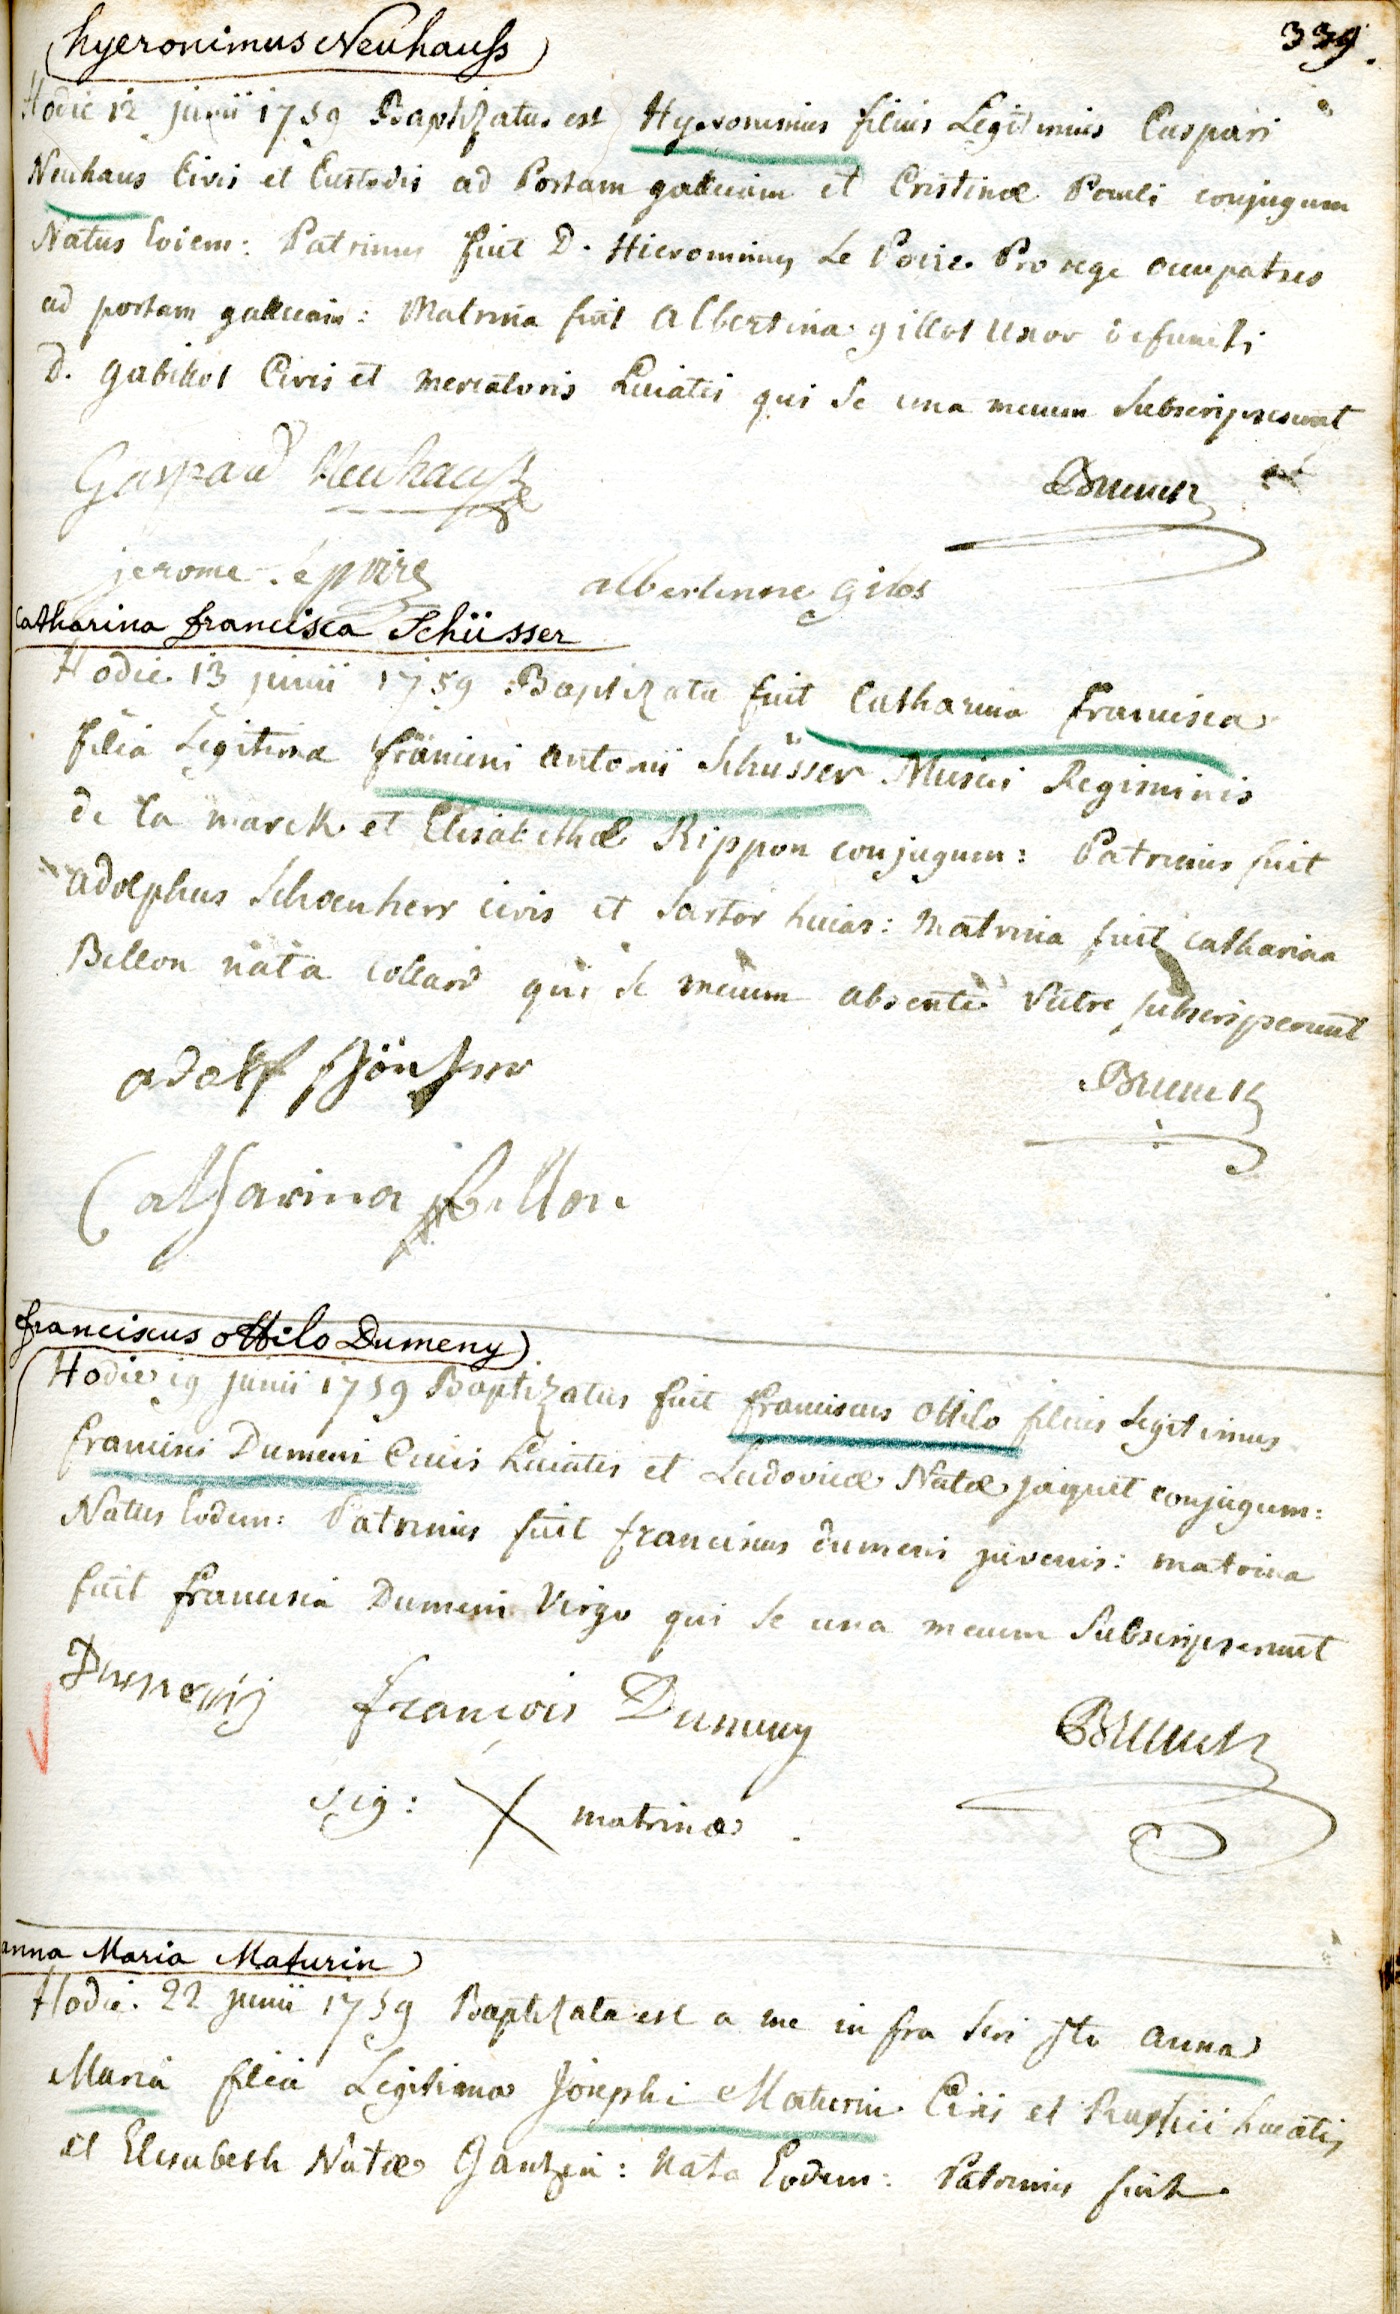 hyeronimus Neuhauss
339.
Hodie 12 junii 1759 Baptizatus est Hyeronimus filius Legitimus Caspari
Neuhaus Civis et Custodis ad Portam gallicam et Cristinæ Pauli conjugum
Natus Eodem: Patrinus fuit D. Hieronimus Le Poire Pro rege
ad portam gallicam: Matrina fuit Albertina gillot Uxor defuncti
D. Civis et mercatoris huiatis qui se una mecum Subscripserunt
Gaspard Neuhauss
Brunck
jerome Lepoire
albertinne gilos
Catharina francisca Schüsser
Hodie 13 junii 1759 Baptizata fuit Catharina francisca
filia Legitima francisci antonii Schüsser Musici Regiminis
de la marck et Elisabethæ Rippon conjugum: Patrinus fuit
adolphus Schœnherr civis et Sartor huias: Matrina fuit catharina
Bellon nata collard qui se mecum absente Patre subscripserunt
adolf schönherr
Brunck
Catharina Bellon
franciscus ottilo Dumeny
Hodie 19 junii 1759 Baptizatus fuit franciscus ottilo filius Legitimus
francisci Dumeni Civis huiatis et Ludovicæ Natæ jaquet conjugum:
Natus Eodem: Patrinus fuit franciscus dumeni juvenis: matrina
fuit francisca Dumeni Virgo qui se una mecum Subscripserunt
Dumenij françois Dumeny
Brunck
sig: X matrinæ
anna Maria Maturin
Hodie 22 junii 1759 Baptizata est a me infra scripto anna
Maria filia Legitima Josephi Maturin Civis et Rustici huiatis
et Elisabeth Natæ Gantzin: Nata Eodem: Patrinus fuit